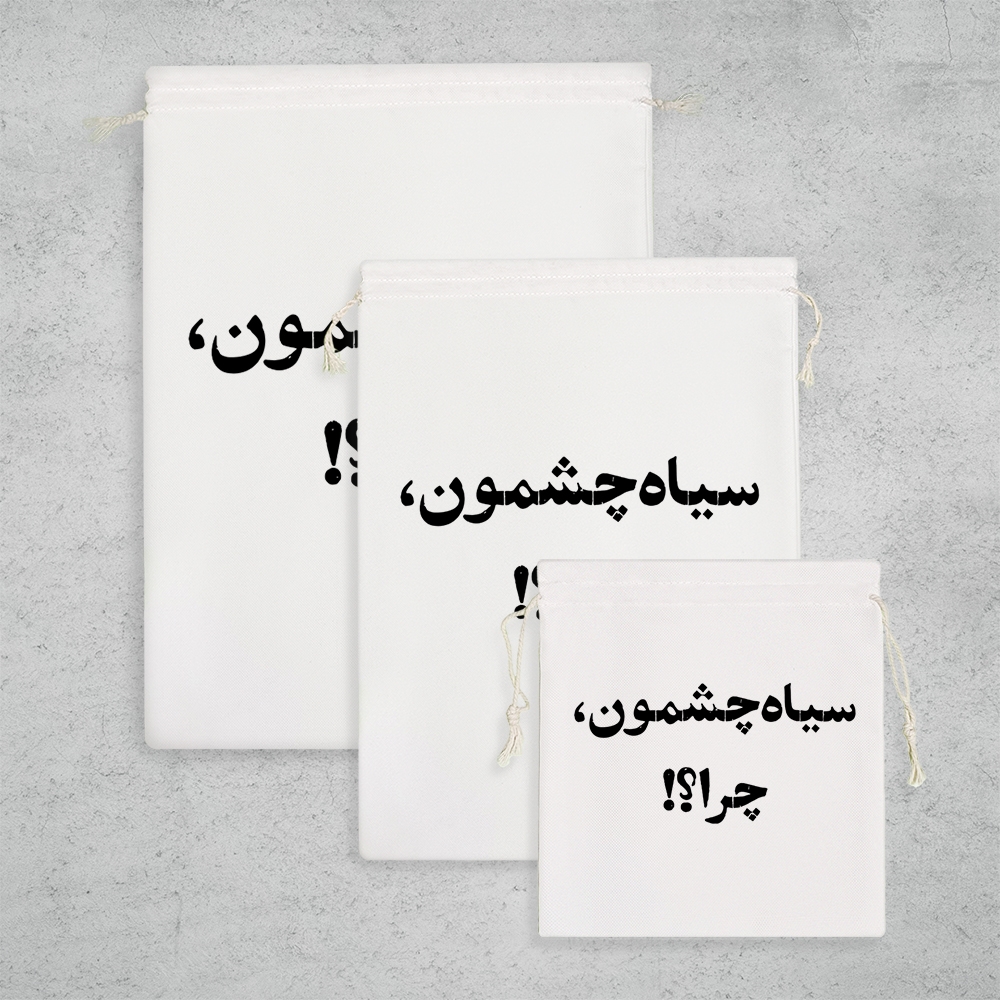 مون،
؟!
سیاه‌چشمون،
؟!
سیاه‌چشمون،
چرا؟!